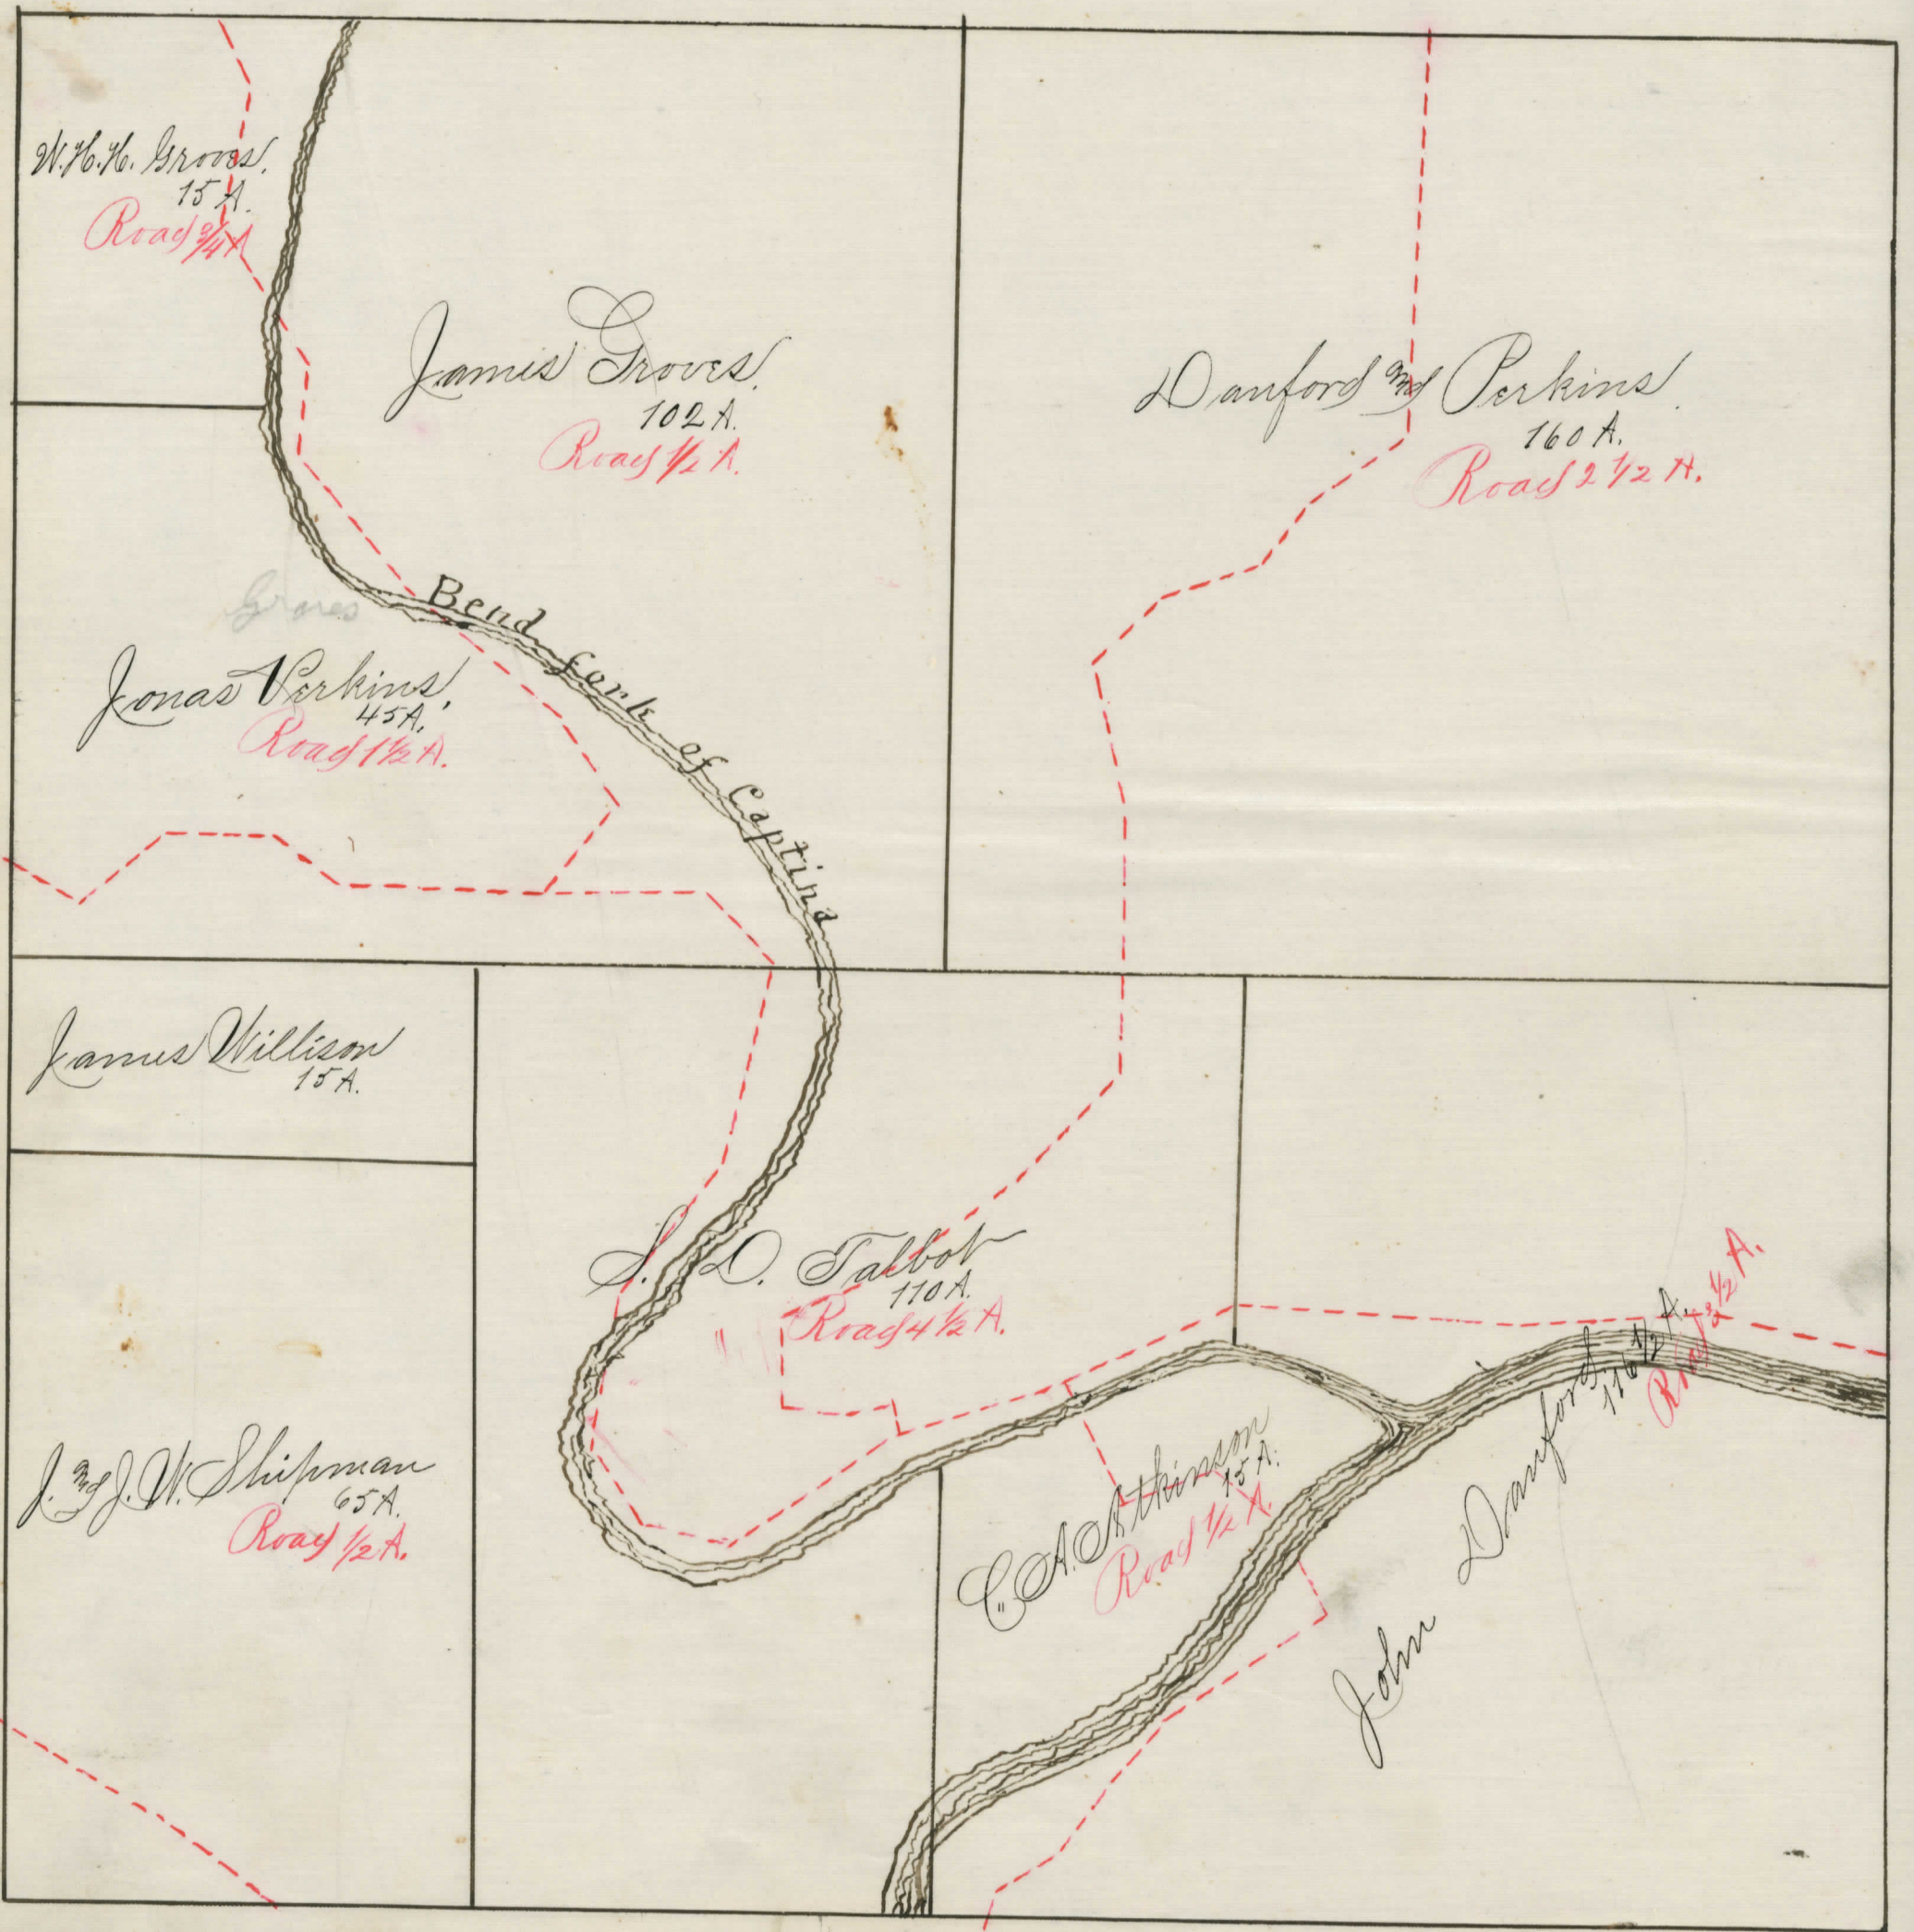 W. H. H. Groves.
15 A.
Road 3/4 A
James Groves.
102 A.
Road 1/2 A.
Danford and Perkins.
160 A.
Road 2 1/2 A.
Bend fork of Captina
Groves
Jonas Perkins.
45 A.
Road 1 1/2 A.
James Willison
15 A.
S. D. Talbot
110 A.
Road 4 1/2 A.
J. and J. W. Shipman
65 A.
Road 1/2 A.
C. A. Atkinson
15 A.
Road 1/2 A.
John Danford
116 1/2 A.
Road 3 1/2 A.